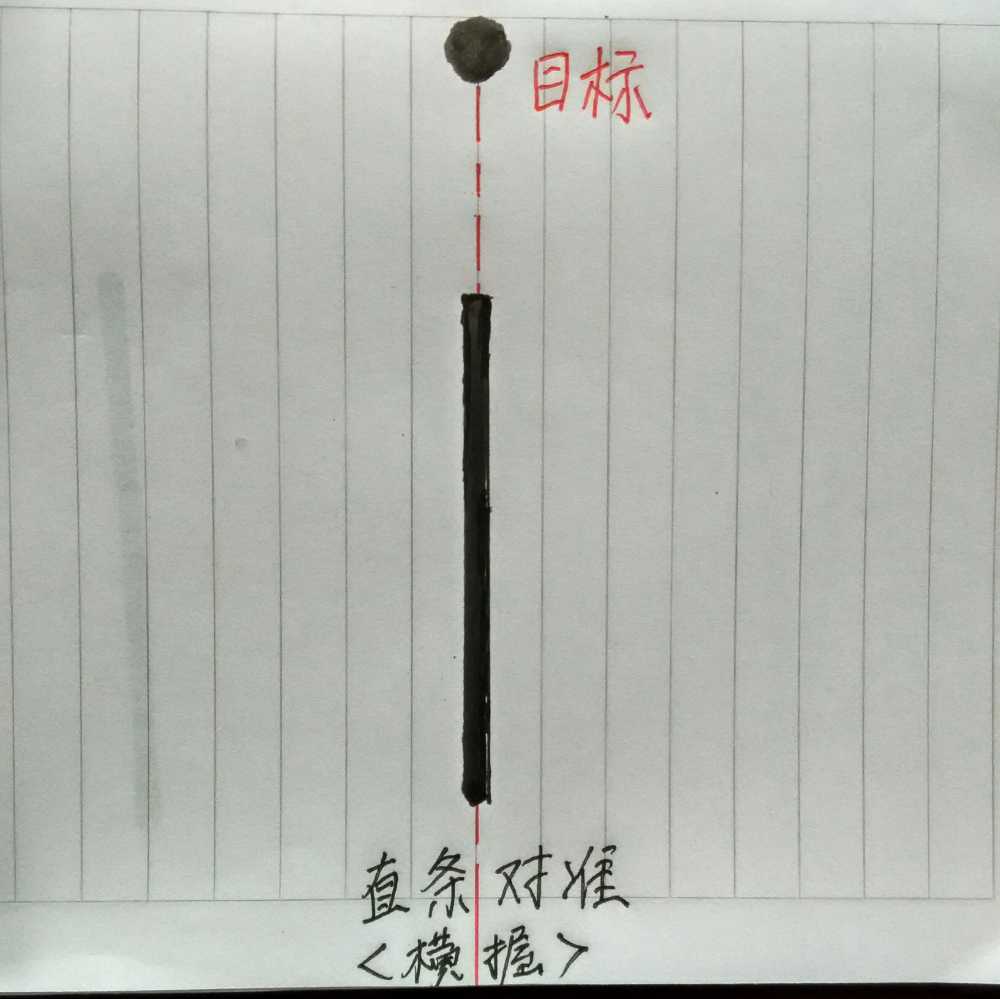 目标
直条对准
<横握>